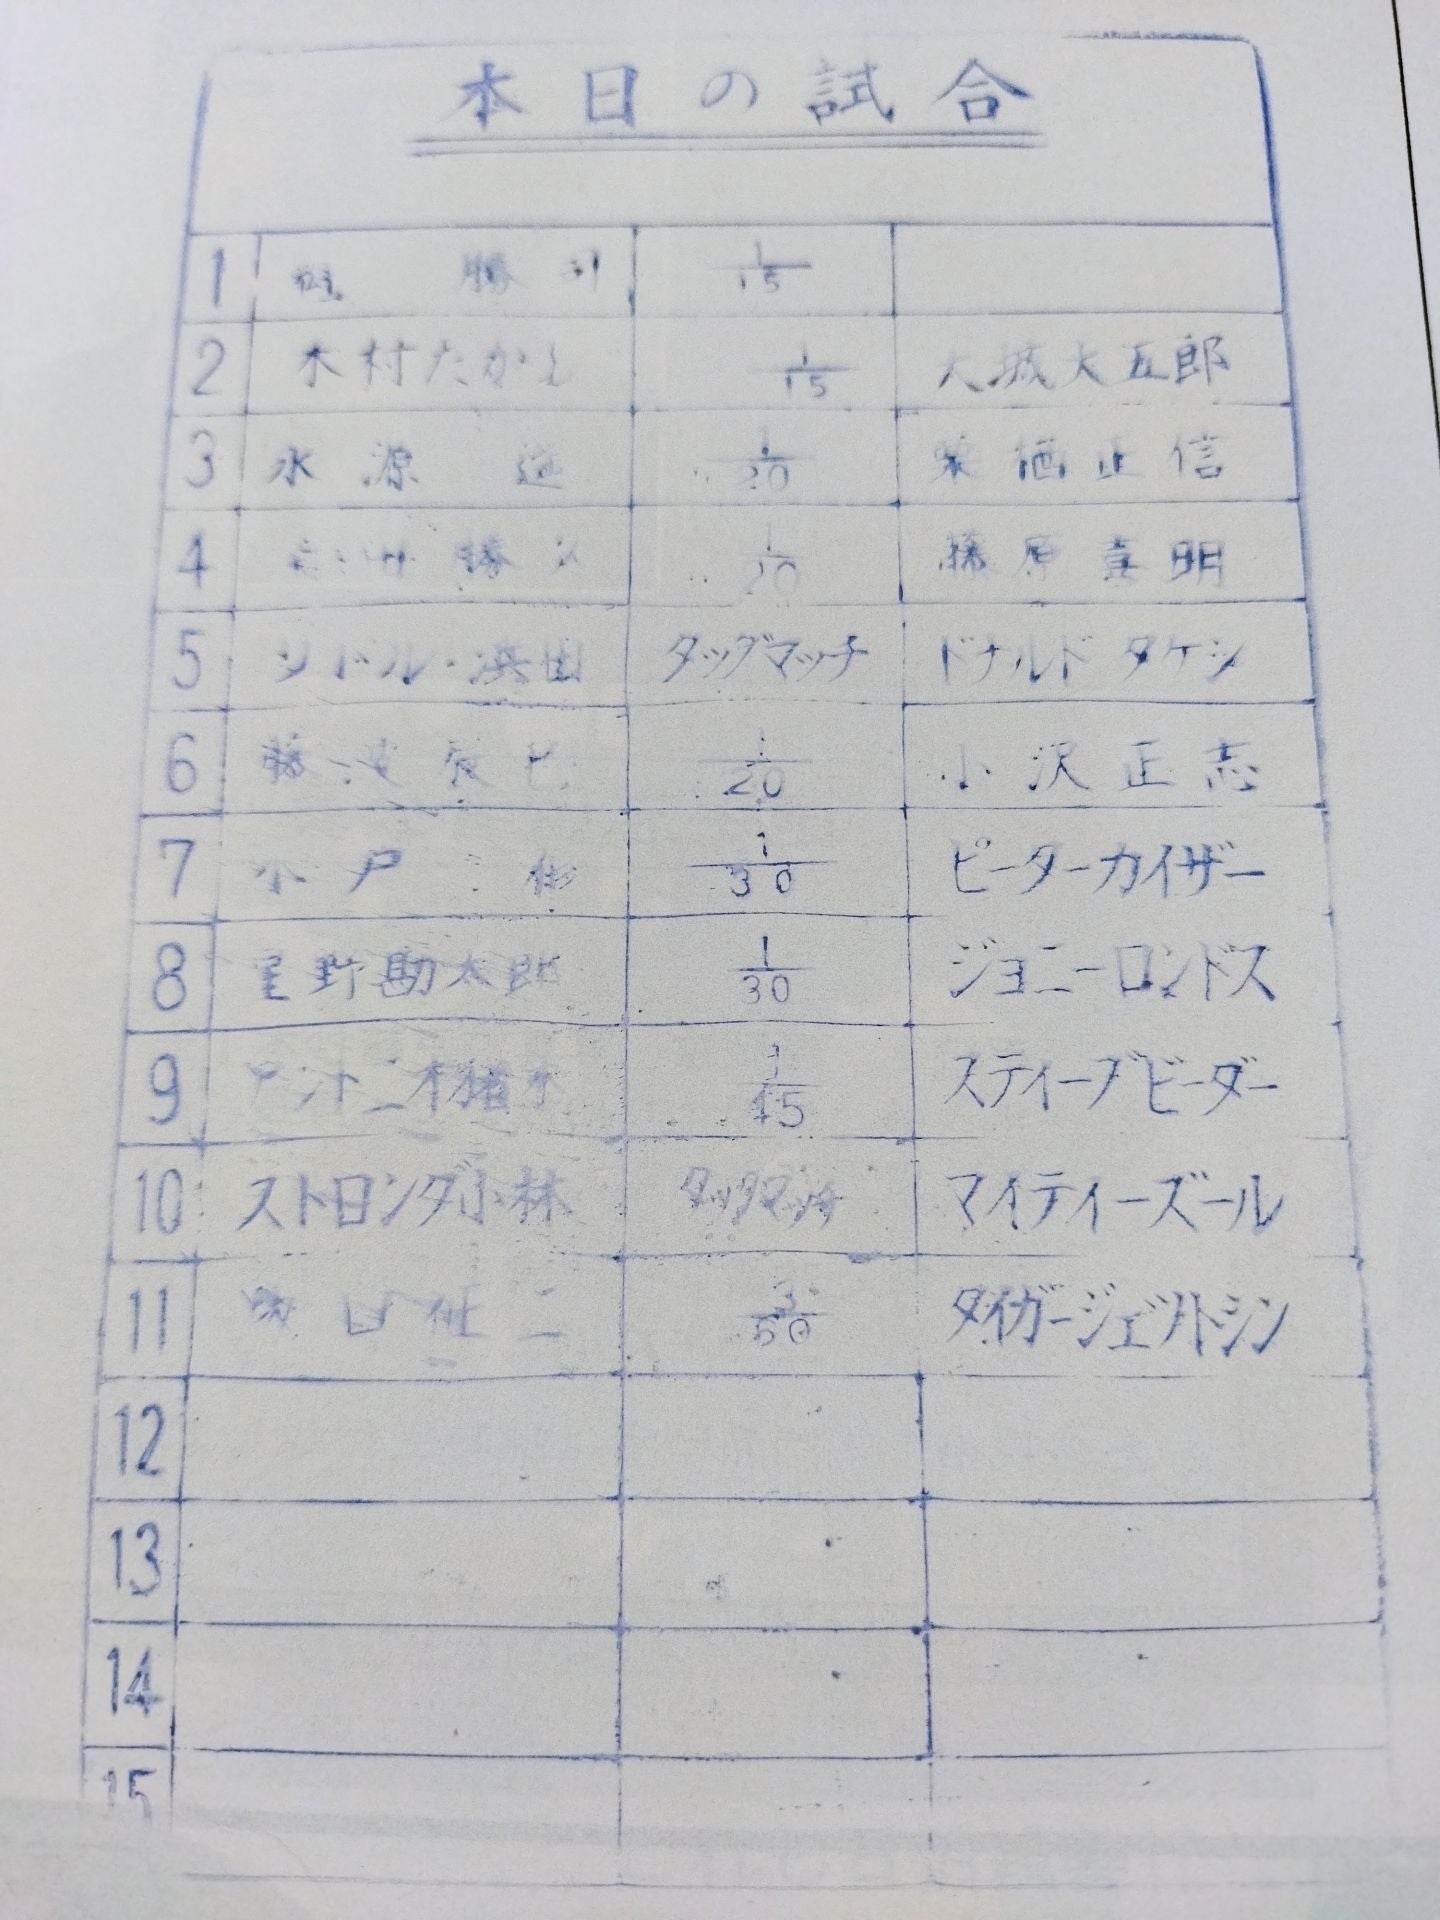 本日の試合
1 勝 1/15
2 木村たかし 1/15 大城大五郎
3 永源遥 1/20 栗栖正信
4 勝 1/20 藤原喜明
5 リトル・浜田 タッグマッチ ドナルドタケシ
6 藤波辰巳 1/20 小沢正志
7 木戸修 1/30 ピーターカイザー
8 星野勘太郎 1/30 ジョニーロンドス
9 アントニオ猪木 1/45 スティーブビーダー
10 ストロング小林 タッグマッチ マイティーズール
11 坂口征二 3/60 タイガージェットシン
12
13
14
15